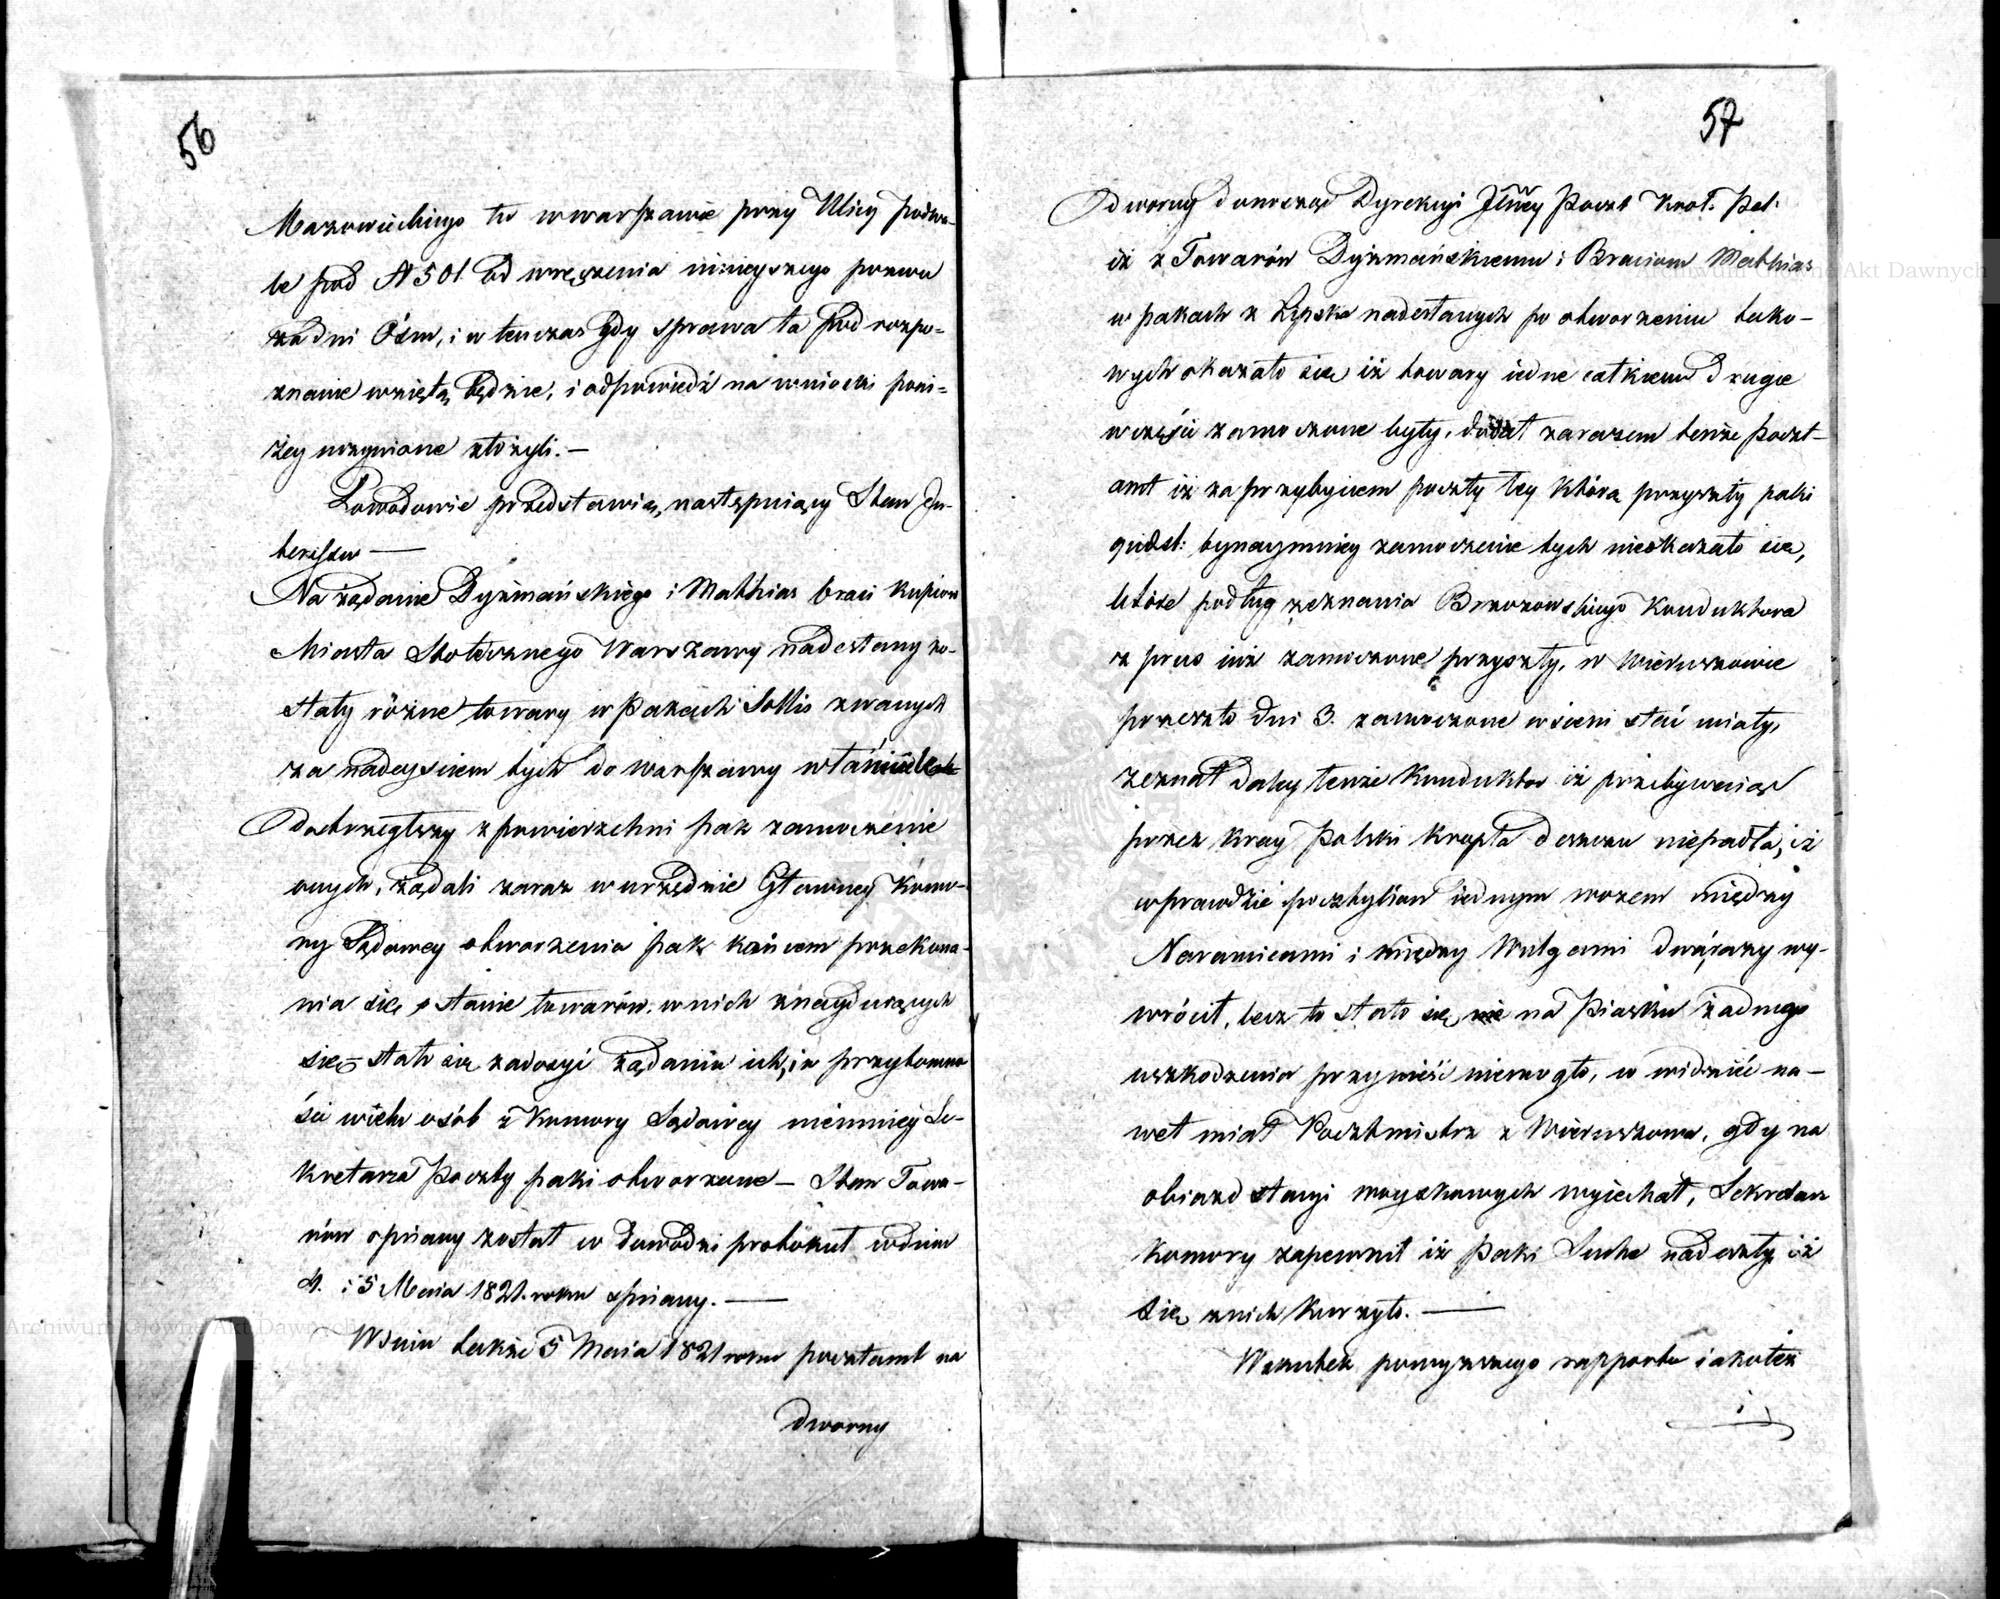 56
Mazowieckiego tu w warszawie przy Ulicy podwa-
le pod N 501. od wręczenia ninieyszego pozwu
za dni Ośm, i w tenczas gdy sprawa ta pod rozpo-
znanie wziętą będzie, i odpowiedź na wnioski poni-
żey uczynione złożyli. —
Powodowie przedstawią następuiący Stan In-
teressu —
Na żądanie Dyzmańskiego i Mathias braci kupców
Miasta Stołecznego Warszawy nadesłany zo-
stały różne towary w pakach Sollis zwanych
za nadeyściem tych do warszawy właściciele
Dostrzegłszy z powierzchni pak zamoczenie
onych, żądali zaraz w urzędzie Głowney Komo-
ry Sądowey otworzenia pak końcem przekona-
nia się o stanie towarów w nich znayduiących
się – stało się zadosyć żądaniu ich, i w przytomno
ści wielu osób z Komory Sądowey niemniey Se-
kretarza Poczty paki otworzone — Stan Towa-
rów opisany został w dowodzi protokuł w dniu
4. i 5 Maia 1821. roku spisany. —
W dniu także 5 Maia 1821 roku pocztamt na
dworny
57
Dworny doniósł Dyrekcyi Jlney Poczt Krol. Pol.
iż z Towarów Dyzmańskiemu i Braciom Mathias
w pakach z Lipska nadesłanych po otworzeniu tako-
wych okazało się iż towary iedne całkiem drugie
w części zamoczone były, dodał zarazem tenże poczt-
amt iż za przybyciem poczty tey którą przyszły paki
quest: bynaymniey zamoczenie tych nieokazało się,
które podług zeznania Brzozowskiego Konduktora
z prus iuż zamoczone przyszły, w Wieruszowie
przeszło dni 3. zamoczone w sieni stać miały,
zeznał daley tenże Konduktor iż przebywaiąc
przez kray Polski kropla deszczu niepadła, iż
wprawdzie pocztylion iednym wozem między
Naramicami i między Wulgami dwa razy wy-
wrócił, lecz to stało się na Piasku żadnego
uszkodzenia przynieść niemogło, w widzieć na-
wet miał Pocztmistrz z Wieruszowa, gdy na
obiazd stacyi woyskowych wyiechał, Sekretarz
Komory zapewnił iż Paki Suche nadeszły, iż
się znich kurzyło. —
Wskutek powyższego rapportu iakoteż
i